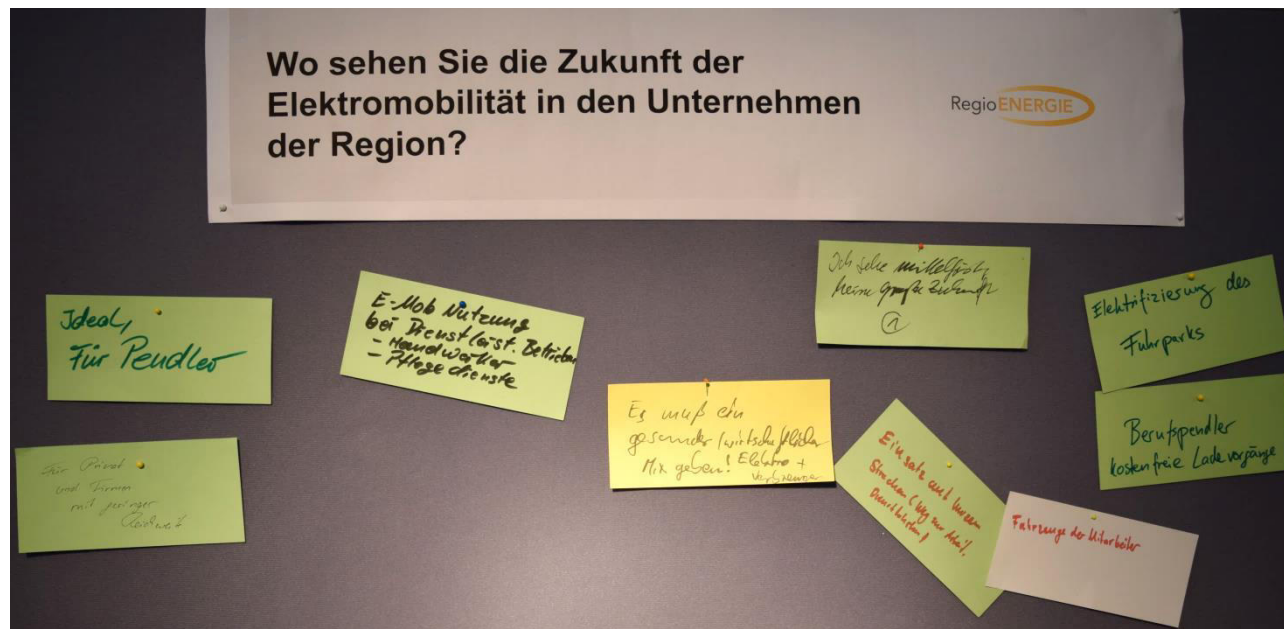 Wo sehen Sie die Zukunft der
Elektromobilität in den Unternehmen
der Region?
RegioENERGIE
Ideal,
Für Pendler
E-Mob Nutzung
bei Dienstleist. Betrieben
- Handwerker
- Pflegedienste
Ich sehe mittelfristig
keine große Zukunft
1
Elektrifizierung des
Fuhrparks
Es muß ein
gesunder/wirtschaftlicher
Mix geben! Elektro +
Verbrenner
Einsatz auf kurzen
Strecken (Weg zur Arbeit,
Dienstfahrten)
Berufspendler
kostenfreie Ladevorgänge
Für Privat
und Firmen
mit geringer
Reichweite
Fahrzeuge der Mitarbeiter